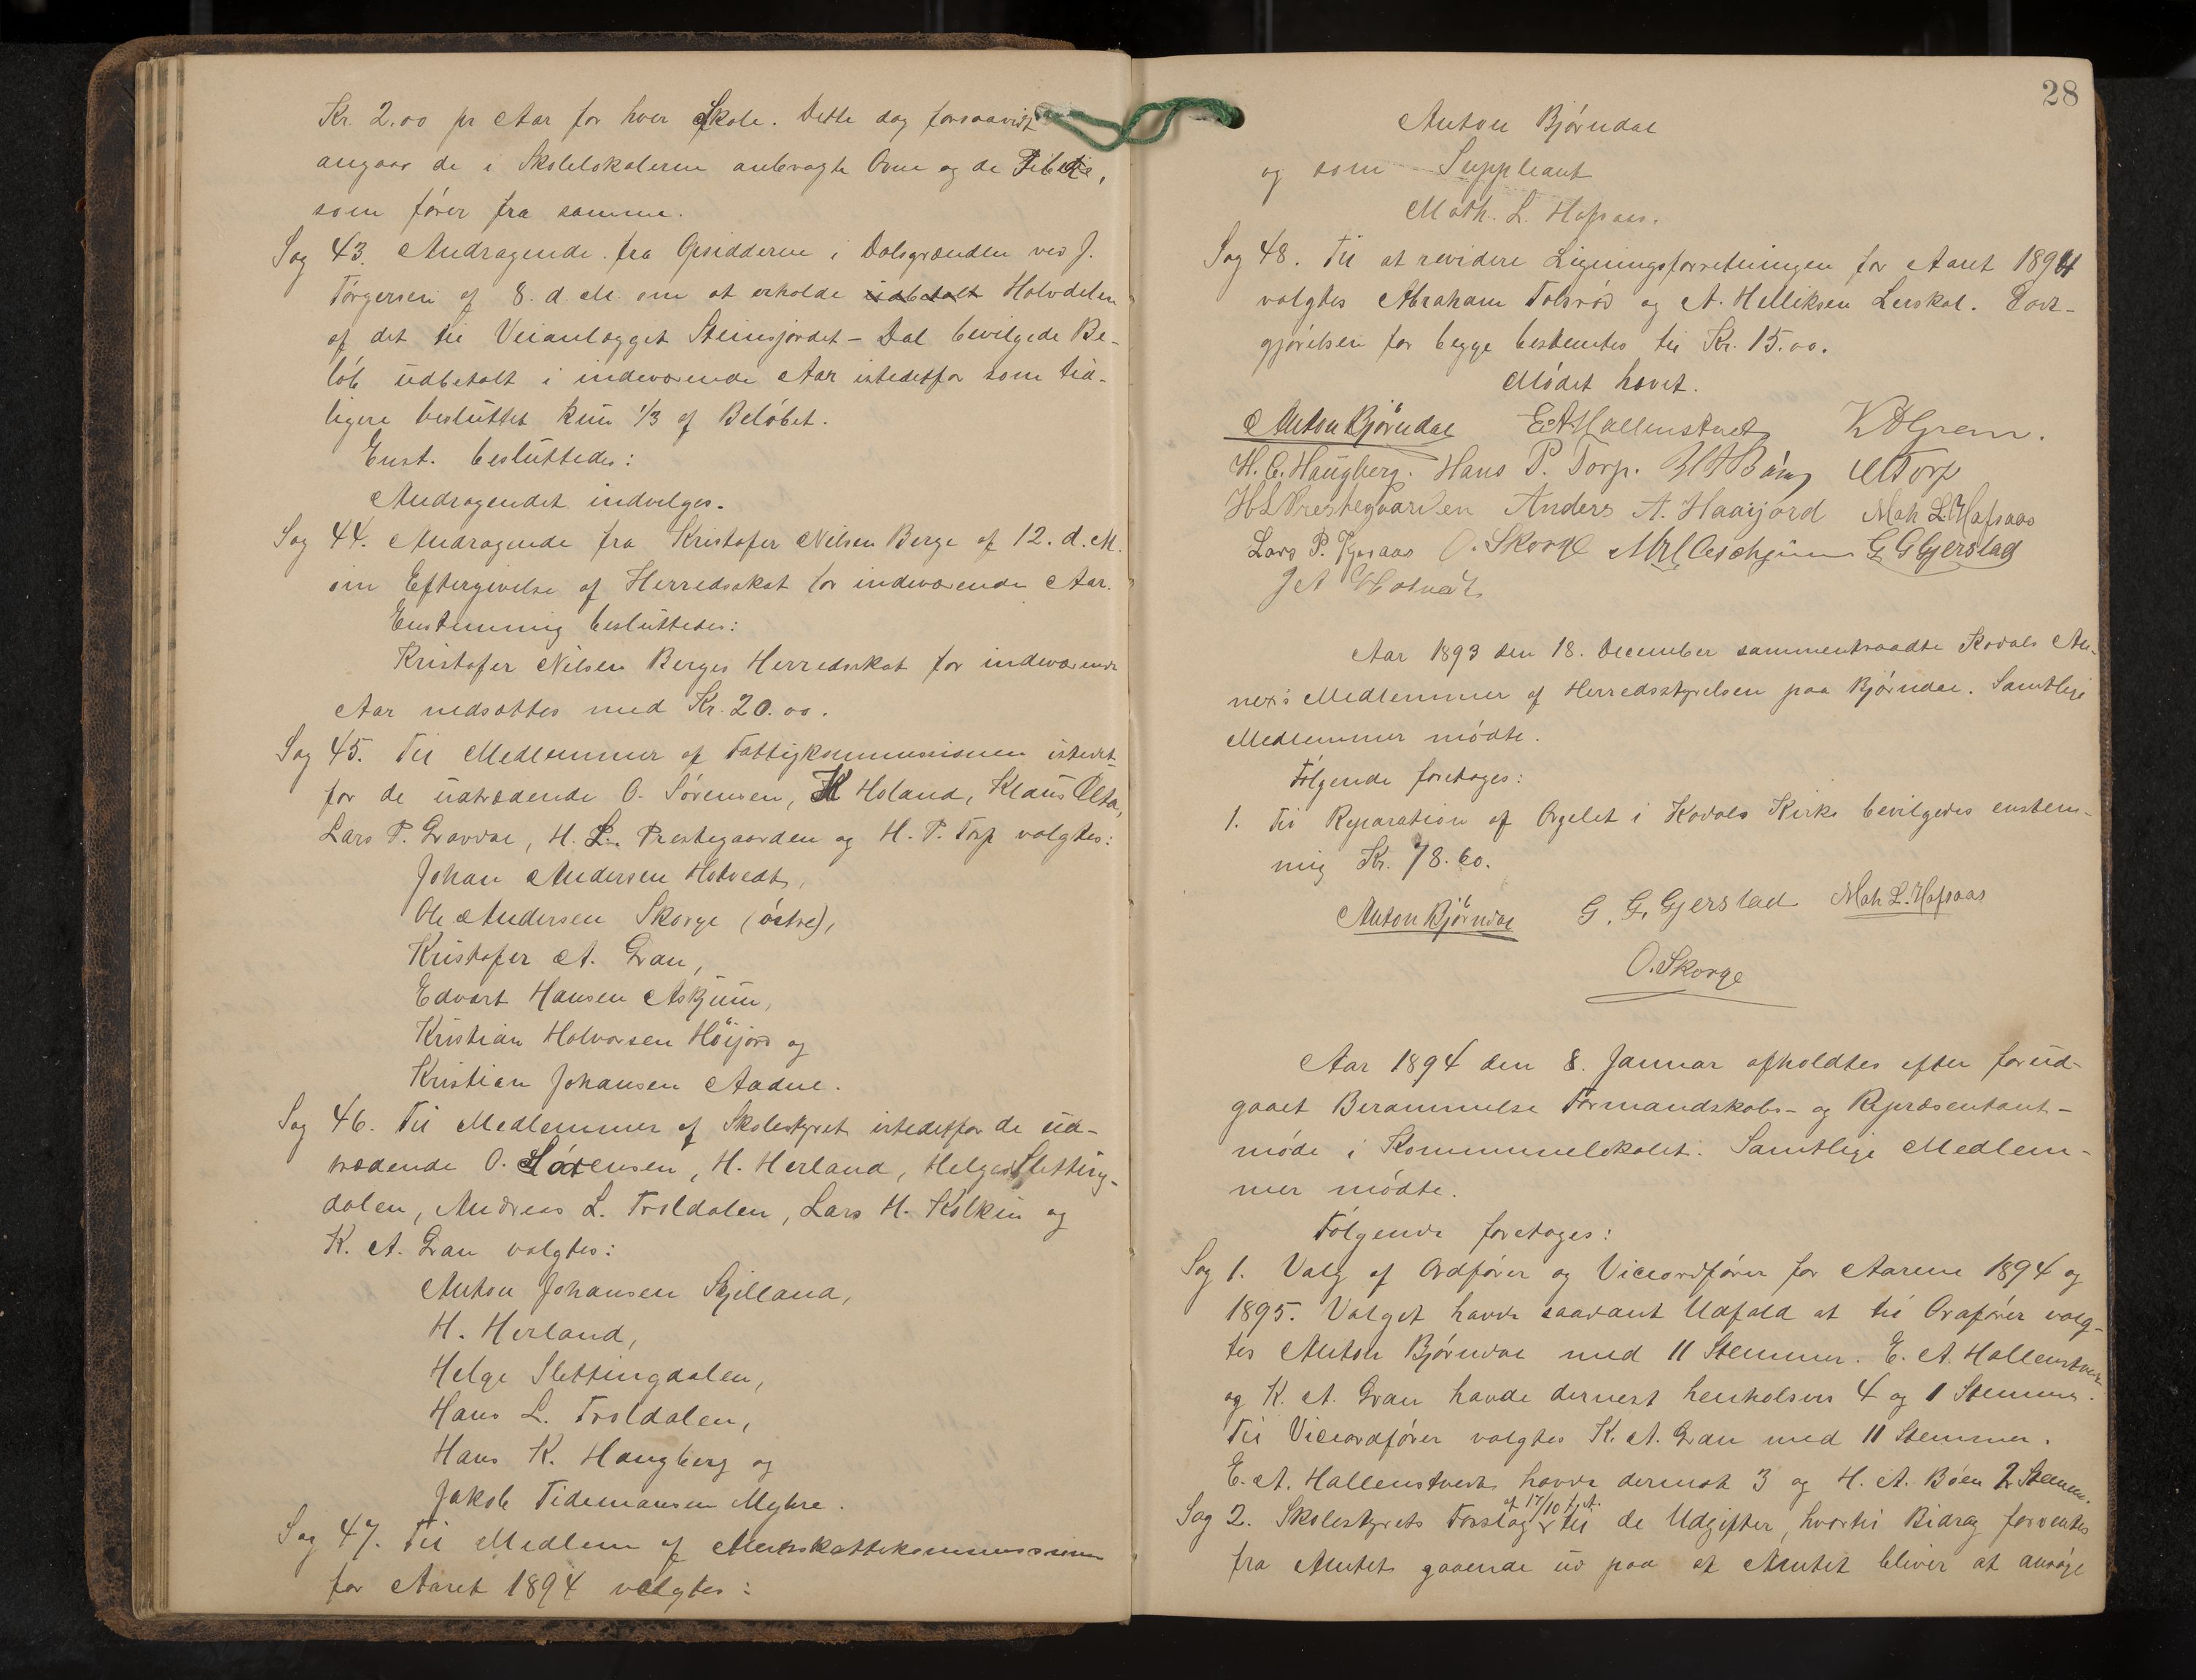 Kr. 2.00 pr Aar for hver Skole. Dette dog forsaavidt
angaar de i Skolelokalerne anbragte Ovne og de
som fører fra samme.
Sag 43. Andragende fra Opsidderne i Dalsgrænden ved J.
Torgersen af 8. d. M. om at erholde udbetalt Halvdelen
af det til Veianlægget Steinsjordet - Dal bevilgede Be-
løb udbetalt i indeværende Aar istedetfor som tid-
ligere besluttet kun 1/3 af Beløbet.
Enst. besluttedes:
Andragendet indvilges.
Sag 44. Andragende fra Kristofer Nilsen Berge af 12. d. M.
om Eftergivelse af Herredsskat for indeværende Aar.
Enstemmig besluttedes:
Kristofer Nilsen Berges Herredsskat for indeværende
Aar nedsattes med Kr. 20.00.
Sag 45. Til Medlemmer af Fattigkommissionen istedet-
for de udtrædende O. Sørensen, K Holand, Klaus
Lars P. Gravdal, H. L. Prestegaarden og H. P. Torp valgtes:
Johan Andersen Hotvedt,
Ole Andersen Skorge (østre),
Kristofer A. Gran,
Edvart Hansen Askjum,
Kristian Halvorsen Høijord og
Kristian Johansen Aadne.
Sag 46. Til Medlemmer af Skolestyret istedetfor de ud-
trædende O. Sørensen, H. Herland, Helge Sletting-
dalen, Andreas L. Troldalen, Lars H. Kolkin og
K. A. Gran valgtes:
Anton Johansen Skjelland,
H. Herland,
Helge Slettingdalen,
Hans L. Troldalen,
Hans K. Haugberg og
Jakob Tidemansen Myhre.
Sag 47. Til Medlem af
for Aaret 1894 valgtes:
28
Anton Bjørndal
og som Suppleant
Math. L. Hafsaas.
Sag 48. Til at revidere Ligningsforretningen for Aaret 1894
valgtes Abraham Tolsrød og A. Helliksen Lerskal. Godt-
gjørelsen for begge bestemtes til Kr. 15.00.
Mødet hævet.
Anton Bjørndal E A Hallenstvet K A Gran.
H. C. Haugberg. Hans P. Torp. H A Bøen M Torp
H L Prestegaarden Anders A. Haaijord Math L. Hafsaas
Lars P. O. Skorge G G Gjerstad
J A Hotvedt
Aar 1893 den 18. December sammentraadte Kodals An-
nex's Medlemmer af Herredsstyrelsen paa Bjørndal. Samtlige
Medlemmer mødte.
Følgende foretoges:
1. Til Reparation af Orgelet i Kodals Kirke bevilgedes enstem-
mig Kr. 78.60.
Anton Bjørndal G. G. Gjerstad Math L. Hafsaas
O. Skorge
Aar 1894 den 8. Januar afholdtes efter forud-
gaaet Berammelse Formandskabs- og Repræsentant-
møde i Kommunelokalet. Samtlige Medlem-
mer mødte.
Følgende foretoges:
Sag 1. Valg af Ordfører og Viceordfører for Aarene 1894 og
1895. Valget havde saadant Udfald at til Ordfører valg-
tes Anton Bjørndal med 11 Stemmer. E. A. Hallenstvedt
og K. A. Gran havde dernest henholdsvis 4 og 1 Stemme.
Til Viceordfører valgtes K. A. Gran med 11 Stemmer.
E. A. Hallenstvedt havde dernest 3 og H. A. Bøen 2 Stemm.
af 17/10 f. A.
Sag 2. Skolestyrets Forslag til de Udgifter, hvortil Bidrag forventes
fra Amtet gaaende ud paa at Amtet bliver at ansøge